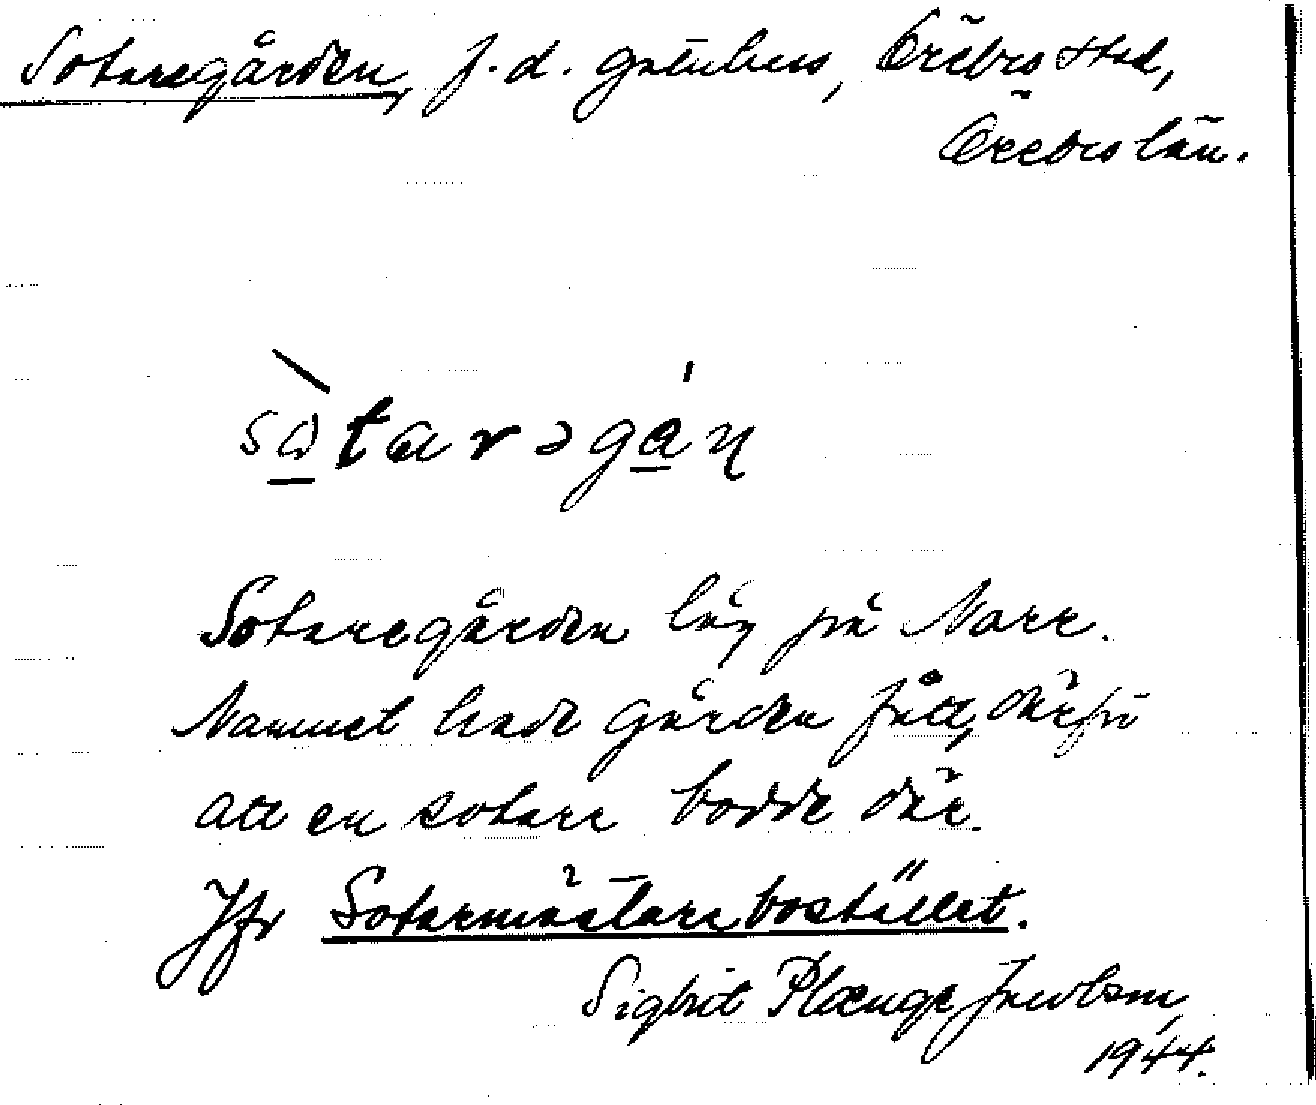 Sotaregården, f.d. gatuhus, Örebro stad,
Örebro län.
sòtarəgáɳ
Sotaregården låg på Norr.
Namnet hade gården fått, därför
att en sotare bodde där.
Jfr Sotarmästarebostället.
Sigbrit Plænge Jacobson,
1944.